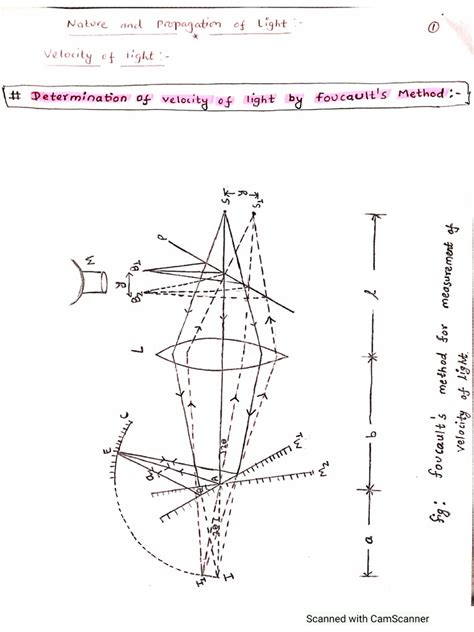 Nature and Propagation of Light :-
①
Velocity of light :-
# Determination of velocity of light by foucault's Method :-
S
S₁
P
M
B₁
B₂
L
l
b
a
C
E
A
M₁
M₂
I
I₁
fig: foucault's method for measurement of
velocity of light.
Scanned with CamScanner